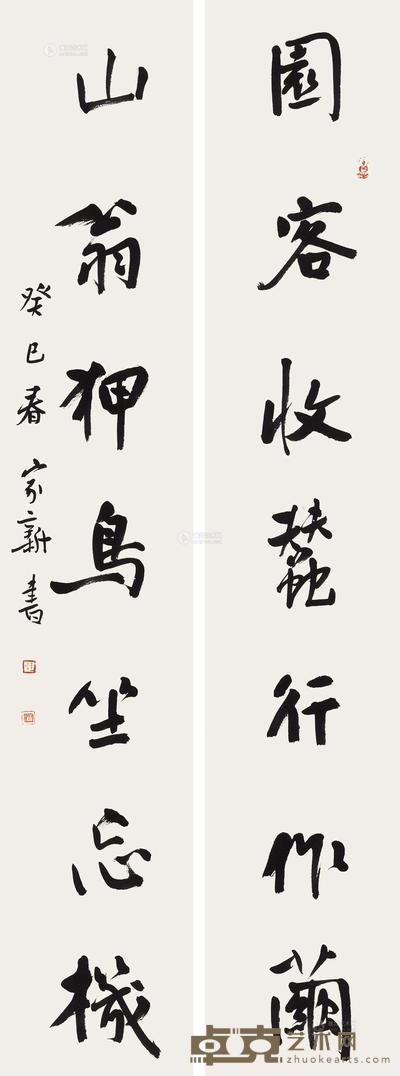 園客收蠶行作繭
山翁狎鳥坐忘機
癸巳春家新書
卓克艺术网
zhuokearts.com